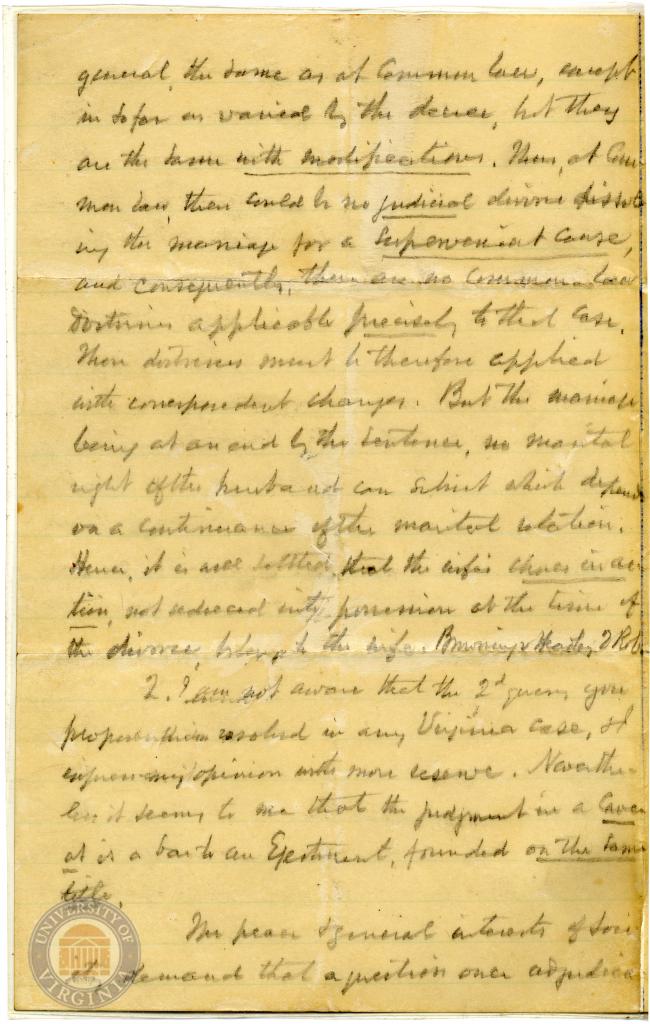 general, the same as at Common law, except
in so far as varied by the decree, but they
are the same with modifications. Thus, at Com
mon law, there could be no judicial divorce dissolv
ing the marriage for a supervenient cause,
and consequently, there are no common law
doctrines applicable precisely to that case.
These doctrines must be therefore applied
with correspondent changes. But the marriage
being at an end by the sentence, no marital
right of the husband can subsist which depends
on a continuance of the marital relation.
Hence, it is well settled, that the wife's choses in ac
tion, not reduced into possession at the time of
the divorce, belong to the wife. Browning v Headley, 2 Rob.
2. I am not aware that the 2d query you
propose been resolved in any Virginia case, & I
express my opinion with more reserve. Neverthe
less it seems to me that the judgment in a Cave
at is a bar to an Ejectment, founded on the same
title.
The peace & general interests of soci
ety demand that a question once adjudica
UNIVERSITY OF
VIRGINIA